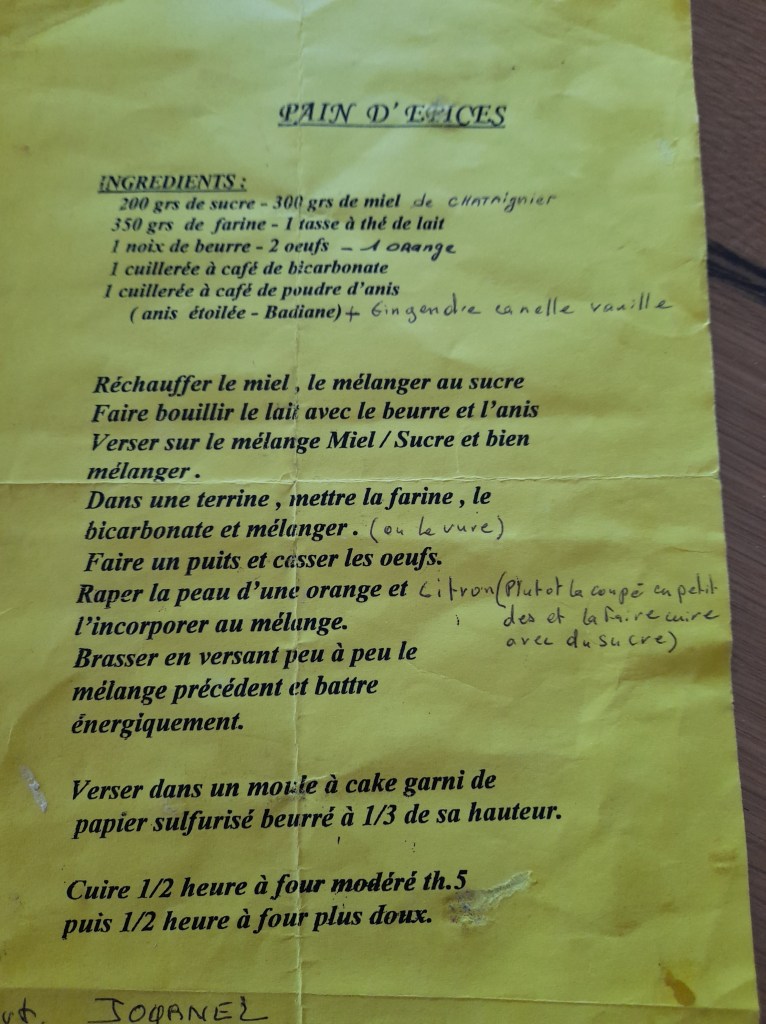 PAIN D' EPICES
INGREDIENTS :
200 grs de sucre - 300 grs de miel de CHATAignier
350 grs de farine - 1 tasse à thé de lait
1 noix de beurre - 2 oeufs - 1 orange
1 cuillerée à café de bicarbonate
1 cuillerée à café de poudre d'anis
( anis étoilée - Badiane) + Gingendre canelle vanille
Réchauffer le miel , le mélanger au sucre
Faire bouillir le lait avec le beurre et l'anis
Verser sur le mélange Miel / Sucre et bien
mélanger .
Dans une terrine , mettre la farine , le
bicarbonate et mélanger . (ou levure)
Faire un puits et casser les oeufs.
Raper la peau d'une orange et Citron (Plutot la coupé en petit
l'incorporer au mélange. des et la faire cuire
avec du sucre)
Brasser en versant peu à peu le
mélange précédent et battre
énergiquement.
Verser dans un moule à cake garni de
papier sulfurisé beurré à 1/3 de sa hauteur.
Cuire 1/2 heure à four modéré th.5
puis 1/2 heure à four plus doux.